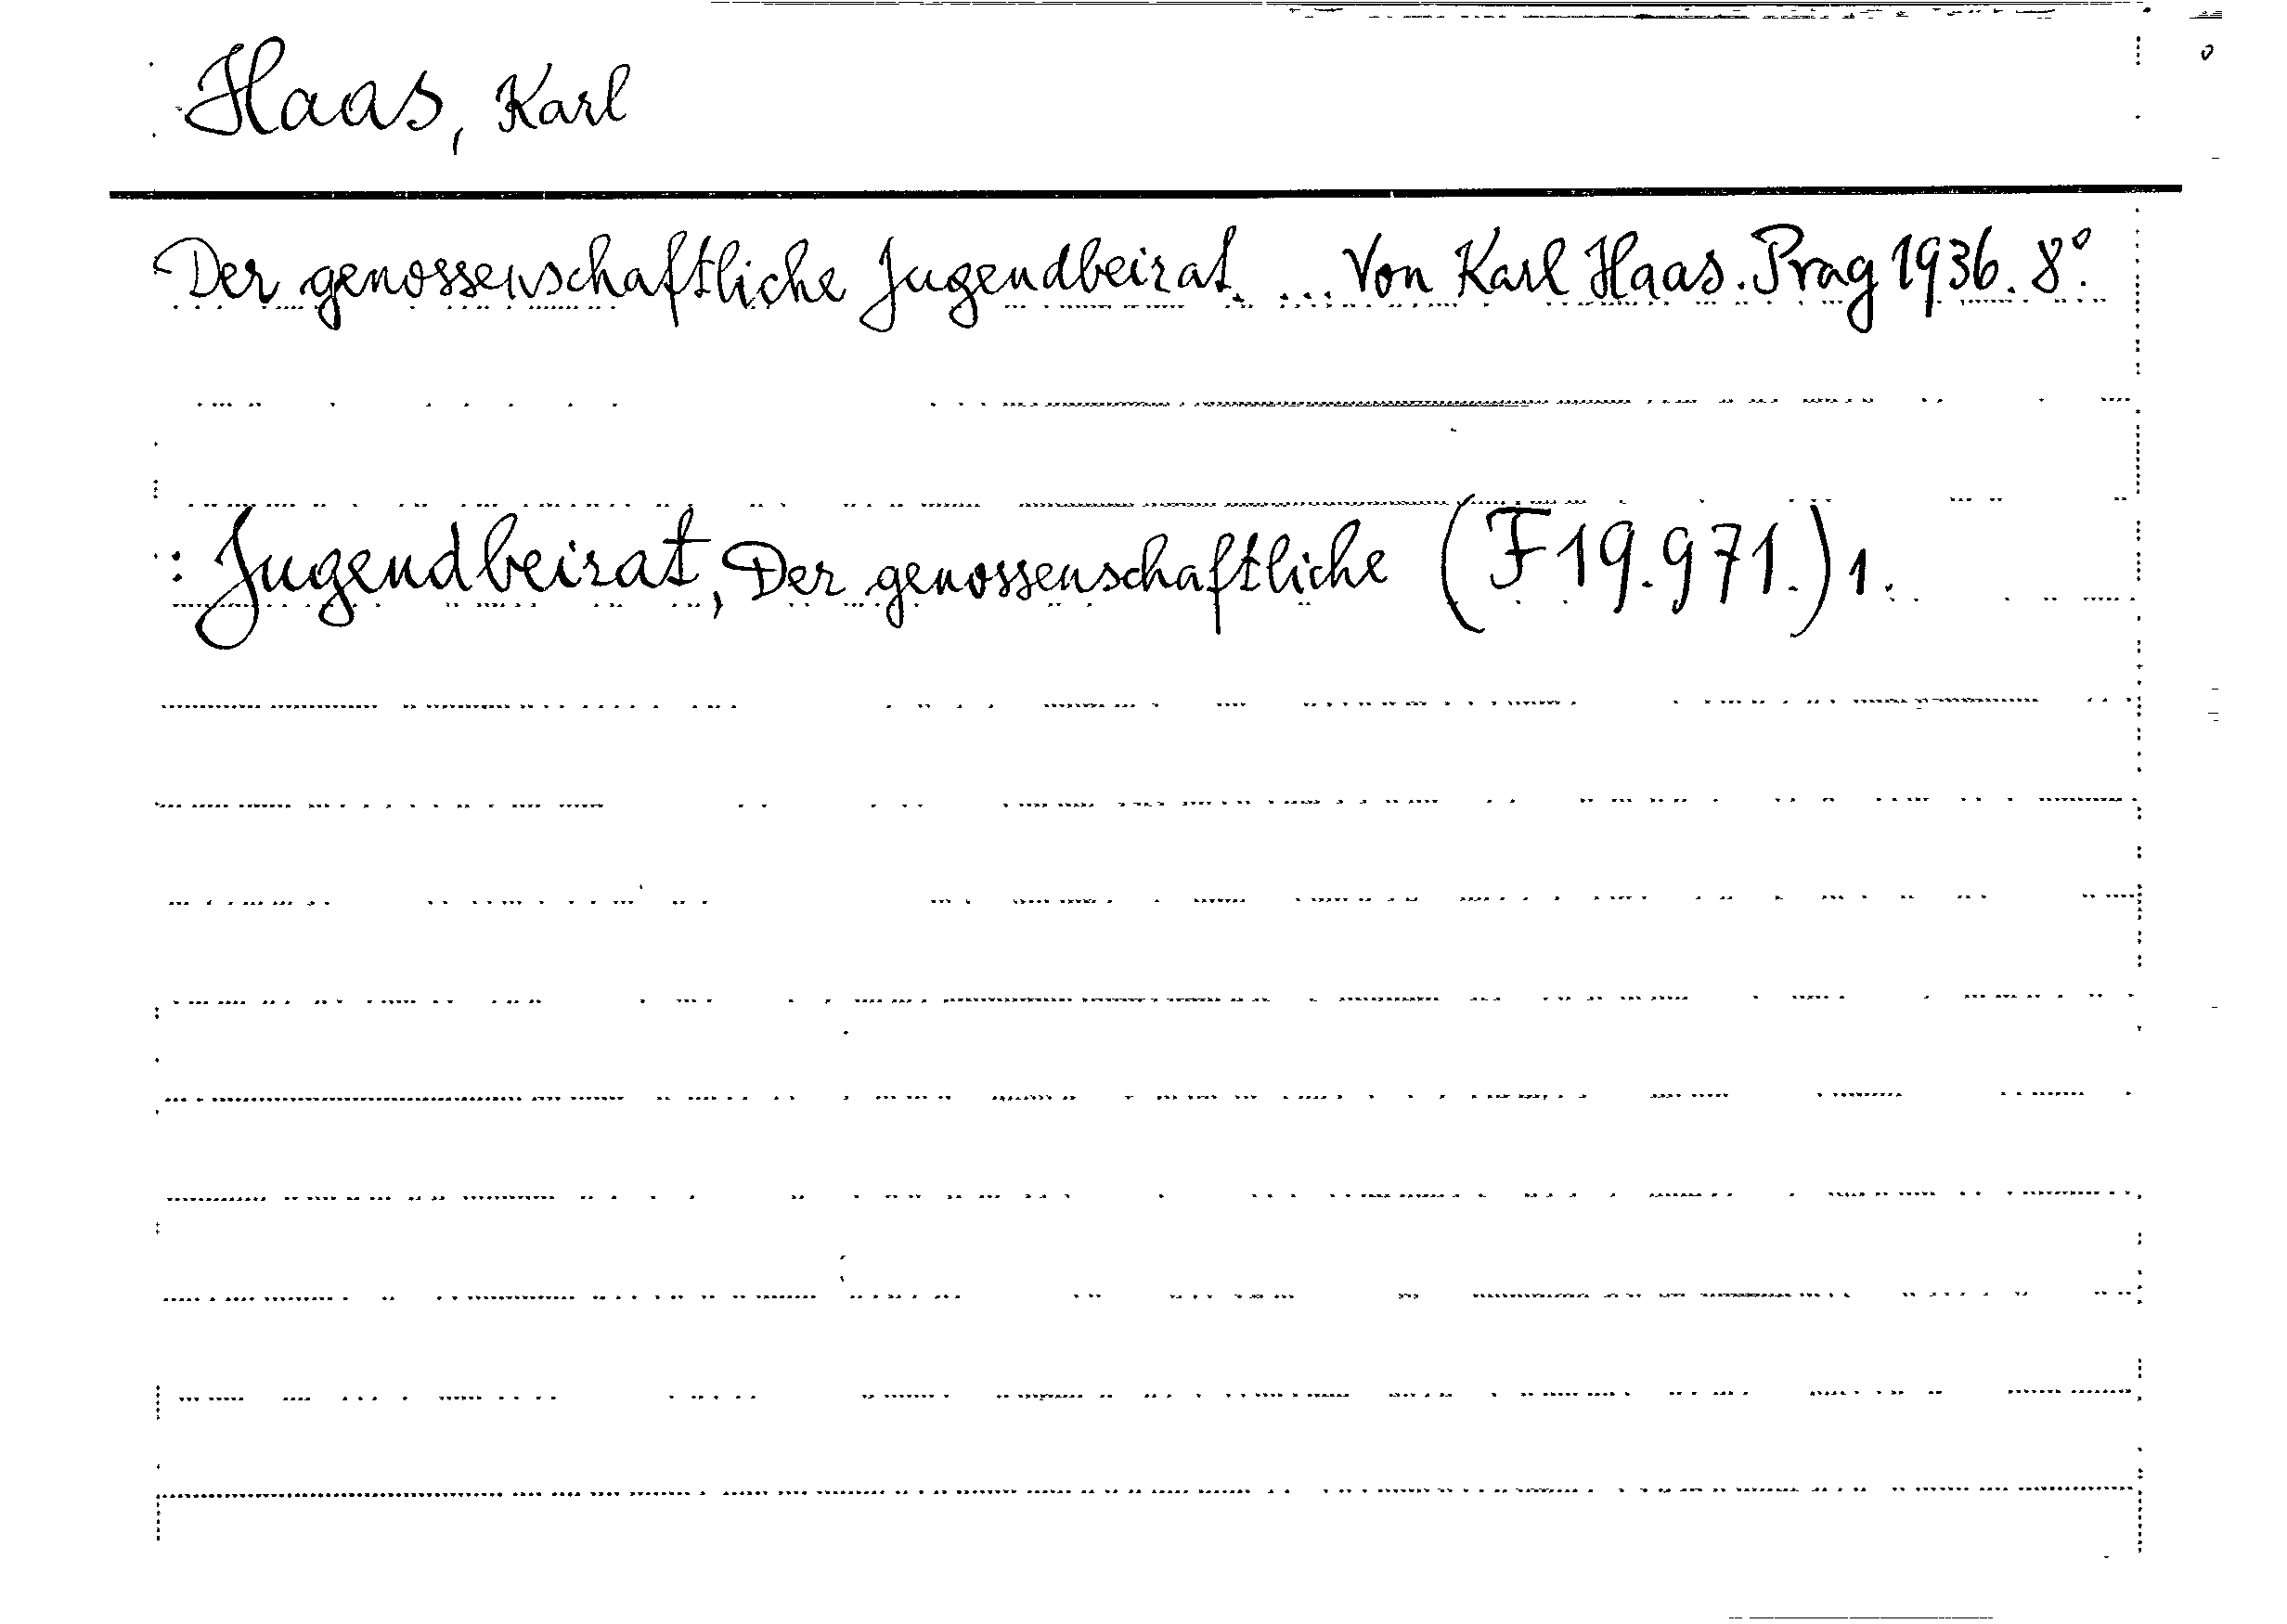 Haas, Karl
Der genossenschaftliche Jugendbeirat. ... Von Karl Haas. Prag 1936. 8°.
: Jugendbeirat, Der genossenschaftliche (F 19.971.) 1.